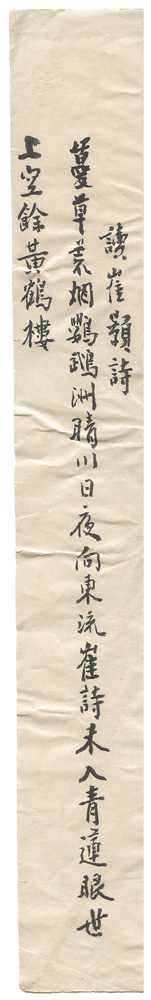 讀崔顥詩
蔓草荒烟鸚鵡洲晴川日夜向東流崔詩未入青蓮眼世
上空餘黃鶴樓